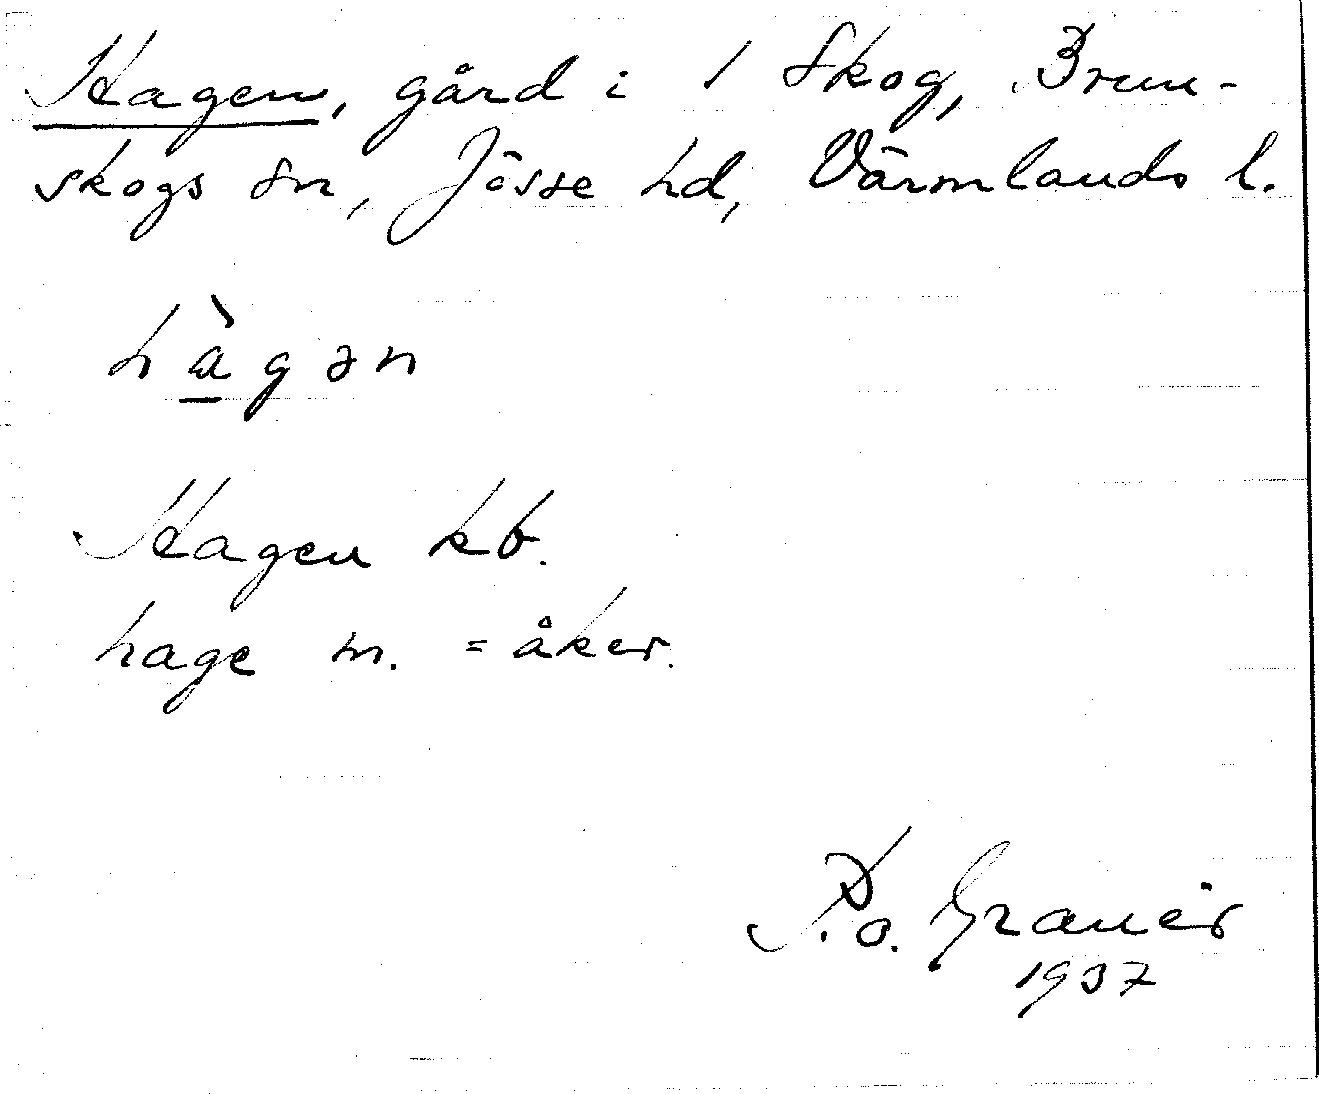 Hagen, gård i 1 Skog, Brun-
skogs sn, Jösse hd, Värmlands l.
hàgən
Hagen kb.
hage m. = åker.
R.o. Granér
1937